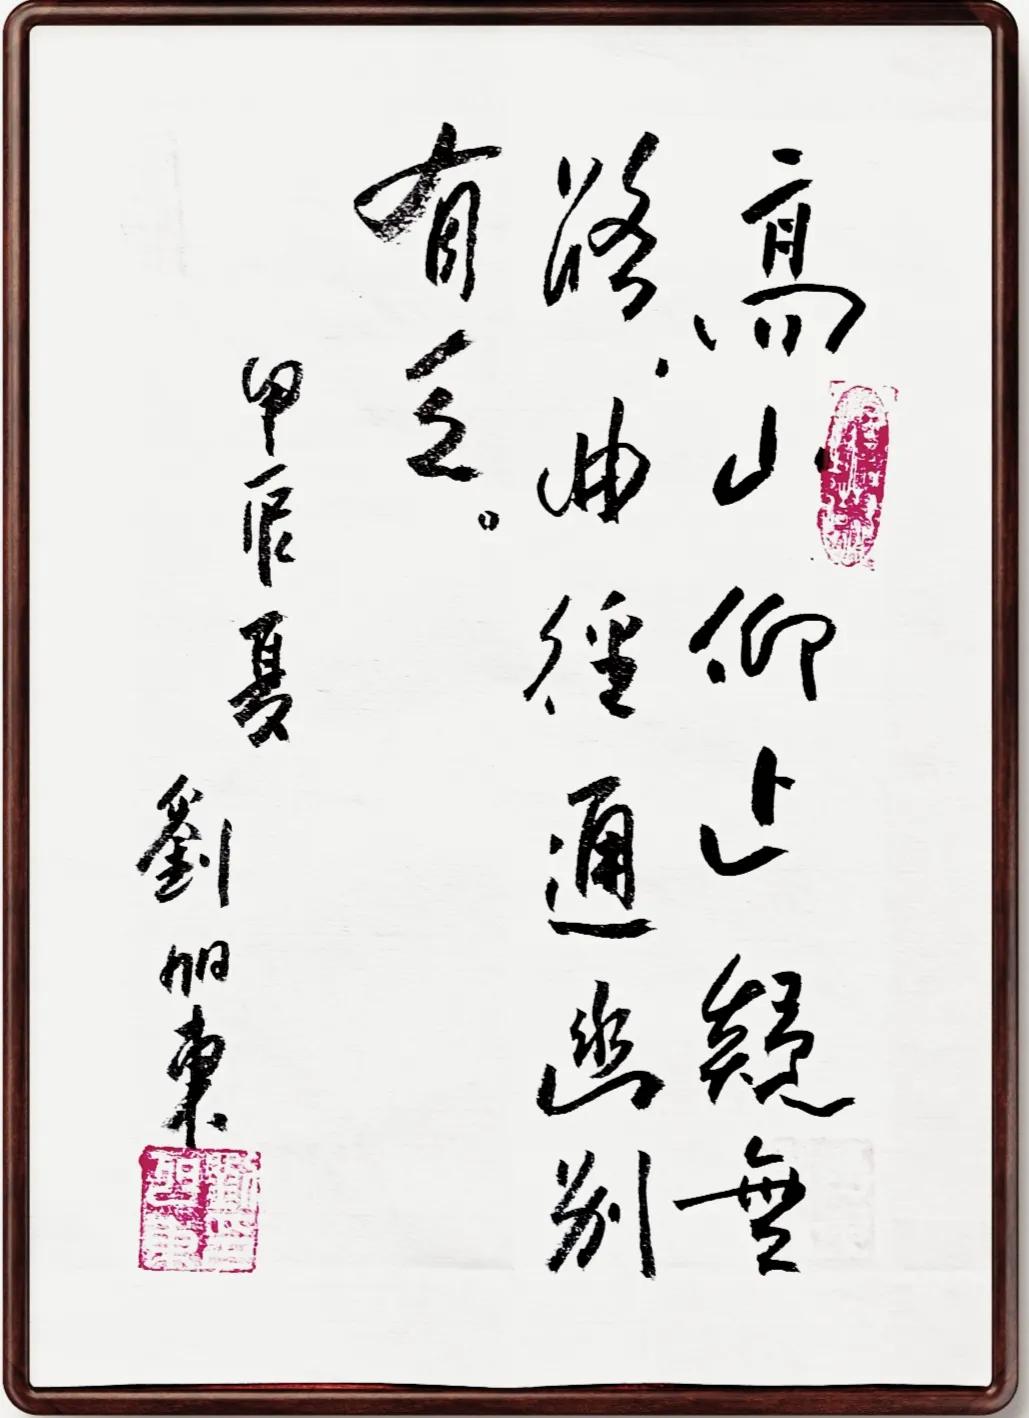 高山仰止疑無
路.曲徑通幽別
有之。
甲辰夏
劉旭東
劉印旭東